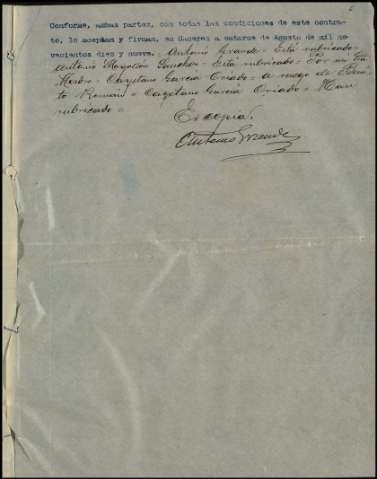 6
Conforme, ambas partes, con todas las condiciones de este contra-
to, lo aceptan y firman, en Caceres a catorce de Agosto de mil no-
vecientos diez y nueve. Antonio Grande - Está rubricado -
Antonio Sanchez - Está rubricado - Por mi
Cayetano Garcia Criado - a ruego de
to Roman - Cayetano Garcia Criado - Hay
rubricado -
Es copia.
Antonio Grande